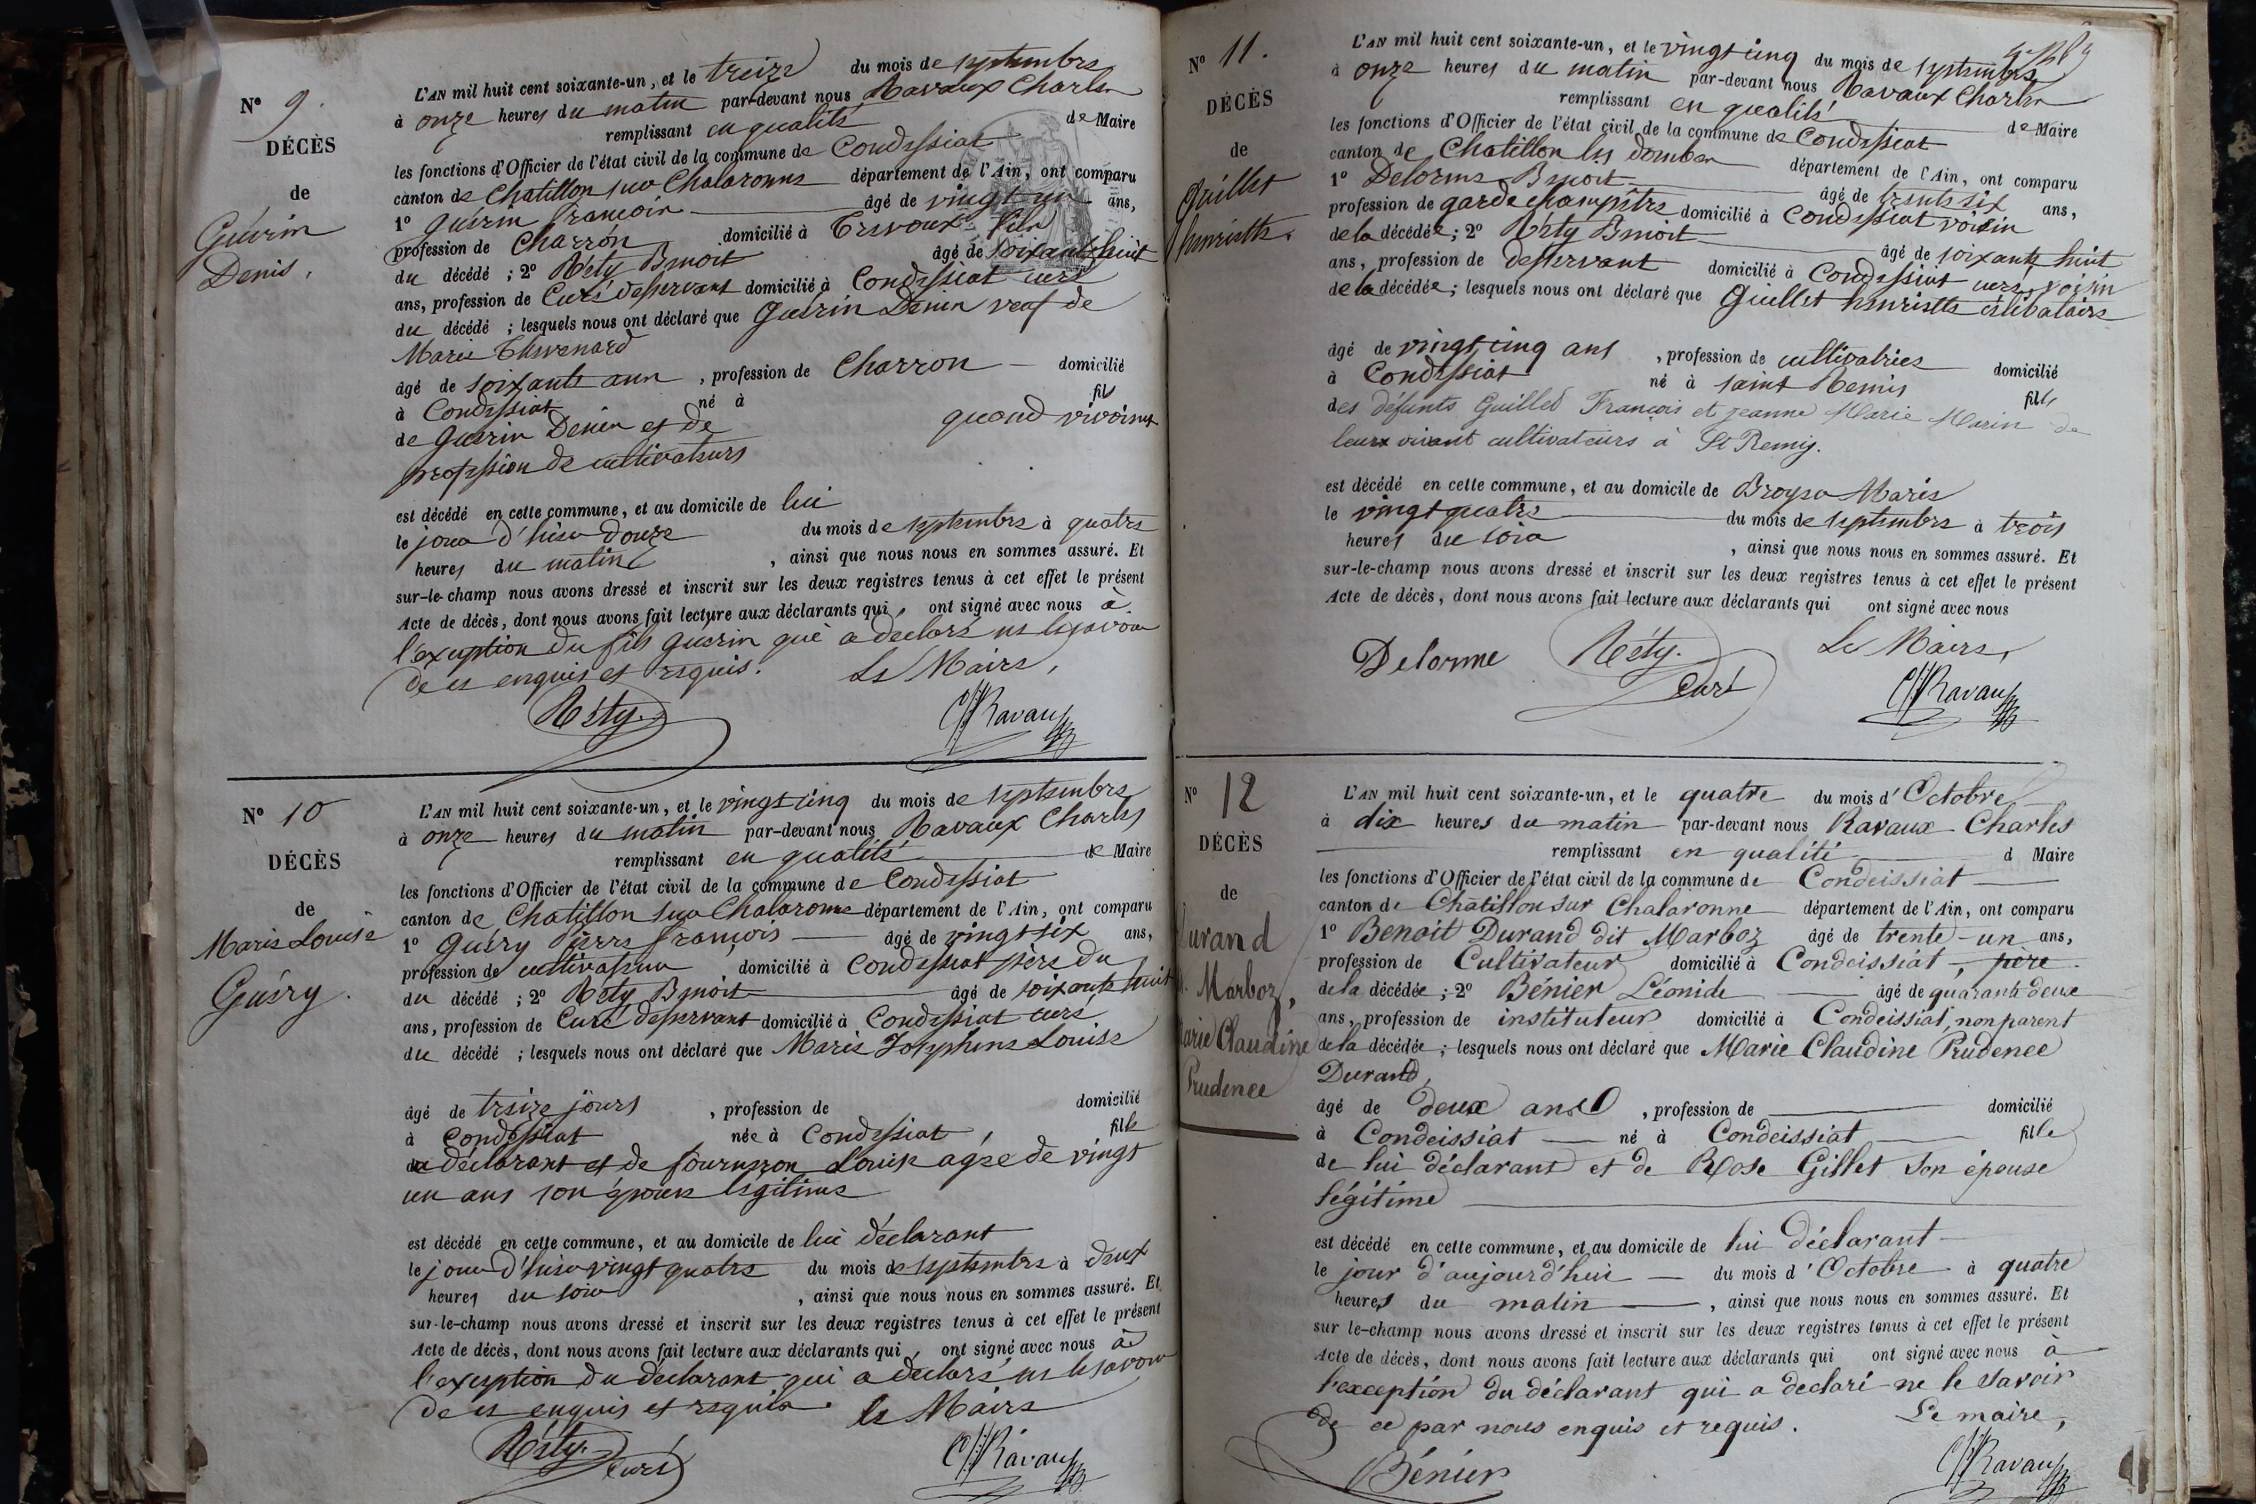 N° 9.
DÉCÈS
de
Guérin
Denis.
L'AN mil huit cent soixante-un, et le treize du mois de septembre
à onze heures du matin par-devant nous Ravaux Charles
remplissant en qualité de Maire
les fonctions d'Officier de l'état civil de la commune de Condeissiat
canton de Chatillon sur Chalaronne département de l'Ain, ont comparu
1° Guérin François âgé de vingt un ans,
profession de Charron domicilié à Trevoux fils
du décédé ; 2° Réty Benoit âgé de soixante huit
ans, profession de Curé desservant domicilié à Condeissiat curé
du décédé ; lesquels nous ont déclaré que Guérin Denis veuf de
Marie Thevenard
âgé de soixante ans , profession de Charron domicilié
à Condeissiat né à fils
de Guérin Denis et de quand vivoient
profession de cultivateurs
est décédé en cette commune, et au domicile de lui
le jour d'hier douze du mois de septembre à quatre
heures du matin , ainsi que nous nous en sommes assuré. Et
sur-le-champ nous avons dressé et inscrit sur les deux registres tenus à cet effet le présent
Acte de décès, dont nous avons fait lecture aux déclarants qui, ont signé avec nous à
l'exeption du fils Guérin qui a déclaré ne le savoir
de ce enquis et requis. Le Maire,
Réty. C Ravaux
N° 10
DÉCÈS
de
Marie Louise
Guéry.
L'AN mil huit cent soixante-un, et le vingt cinq du mois de septembre
à onze heures du matin par-devant nous Ravaux Charles
remplissant en qualité de Maire
les fonctions d'Officier de l'état civil de la commune de Condeissiat
canton de Chatillon sur Chalaronne département de l'Ain, ont comparu
1° Guéry Pierre François âgé de vingt six ans,
profession de cultivateur domicilié à Condeissiat père du
du décédé ; 2° Réty Benoit âgé de soixante huit
ans, profession de Curé desservant domicilié à Condeissiat curé
du décédé ; lesquels nous ont déclaré que Marie Josephine Louise
âgé de treize jours , profession de domicilié
à Condeissiat née à Condeissiat, fille
du déclarant et de Louise agée de vingt
un ans son épouse légitime
est décédé en cette commune, et au domicile de lui déclarant
le jour d'hier vingt quatre du mois de septembre à deux
heures du soir , ainsi que nous nous en sommes assuré. Et
sur-le-champ nous avons dressé et inscrit sur les deux registres tenus à cet effet le présent
Acte de décès, dont nous avons fait lecture aux déclarants qui, ont signé avec nous à
l'exeption du déclarant qui a déclaré ne le savoir
de ce enquis et requis. le Maire
Réty. Curé C Ravaux
N° 11.
DÉCÈS
de
Guillet
henriette.
L'AN mil huit cent soixante-un, et le vingt cinq du mois de septembre
à onze heures du matin par-devant nous Ravaux Charles
remplissant en qualité de Maire
les fonctions d'Officier de l'état civil de la commune de Condeissiat
canton de Chatillon les Dombes département de l'Ain, ont comparu
1° Delorme Benoit âgé de trente six ans,
profession de garde champêtre domicilié à Condeissiat voisin
de la décédée ; 2° Réty Benoit âgé de soixante huit
ans, profession de desservant domicilié à Condeissiat curé, voisin
de la décédée ; lesquels nous ont déclaré que Guillet henriette célibataire
âgé de vingt cinq ans , profession de cultivatrice domicilié
à Condeissiat né à saint Remis fille
des défunts Guillet François et jeanne Marie Marin de
leurs vivant cultivateurs à St Remy.
est décédé en cette commune, et au domicile de Broyer Marie
le vingt quatre du mois de septembre à trois
heures du soir , ainsi que nous nous en sommes assuré. Et
sur-le-champ nous avons dressé et inscrit sur les deux registres tenus à cet effet le présent
Acte de décès, dont nous avons fait lecture aux déclarants qui ont signé avec nous
Delorme Réty. Curé Le Maire,
C Ravaux
N° 12
DÉCÈS
de
Durand
d. Marboz,
Marie Claudine
Prudence
L'AN mil huit cent soixante-un, et le quatre du mois d'Octobre
à dix heures du matin par-devant nous Ravaux Charles
remplissant en qualité d Maire
les fonctions d'Officier de l'état civil de la commune de Condeissiat
canton de Châtillon sur Chalaronne département de l'Ain, ont comparu
1° Benoît Durand dit Marboz âgé de trente-un ans,
profession de Cultivateur domicilié à Condeissiat, père
de la décédée ; 2° Bénier Léonide âgé de quarante deux
ans, profession de instituteur domicilié à Condeissiat, non parent
de la décédée ; lesquels nous ont déclaré que Marie Claudine Prudence
Durand,
âgé de deux ans , profession de domicilié
à Condeissiat né à Condeissiat fille
de lui déclarant et de Rose Gillet son épouse
légitime
est décédé en cette commune, et au domicile de lui déclarant
le jour d'aujourd'hui du mois d'Octobre à quatre
heures du matin , ainsi que nous nous en sommes assuré. Et
sur le-champ nous avons dressé et inscrit sur les deux registres tenus à cet effet le présent
Acte de décès, dont nous avons fait lecture aux déclarants qui ont signé avec nous à
l'exception du déclarant qui a déclaré ne le savoir
de ce par nous enquis et requis. Le maire,
Bénier C Ravaux